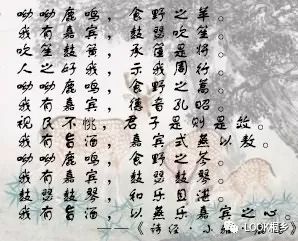 呦呦鹿鸣，食野之苹。
我有嘉宾，鼓瑟吹笙。
吹笙鼓簧，承筐是将。
人之好我，示我周行。
呦呦鹿鸣，食野之蒿。
我有嘉宾，德音孔昭。
视民不恌，君子是则是效。
我有旨酒，嘉宾式燕以敖。
呦呦鹿鸣，食野之芩。
我有嘉宾，鼓瑟鼓琴。
鼓瑟鼓琴，和乐且湛。
我有旨酒，以燕乐嘉宾之心。
——《诗经·小雅
LOOK桐乡